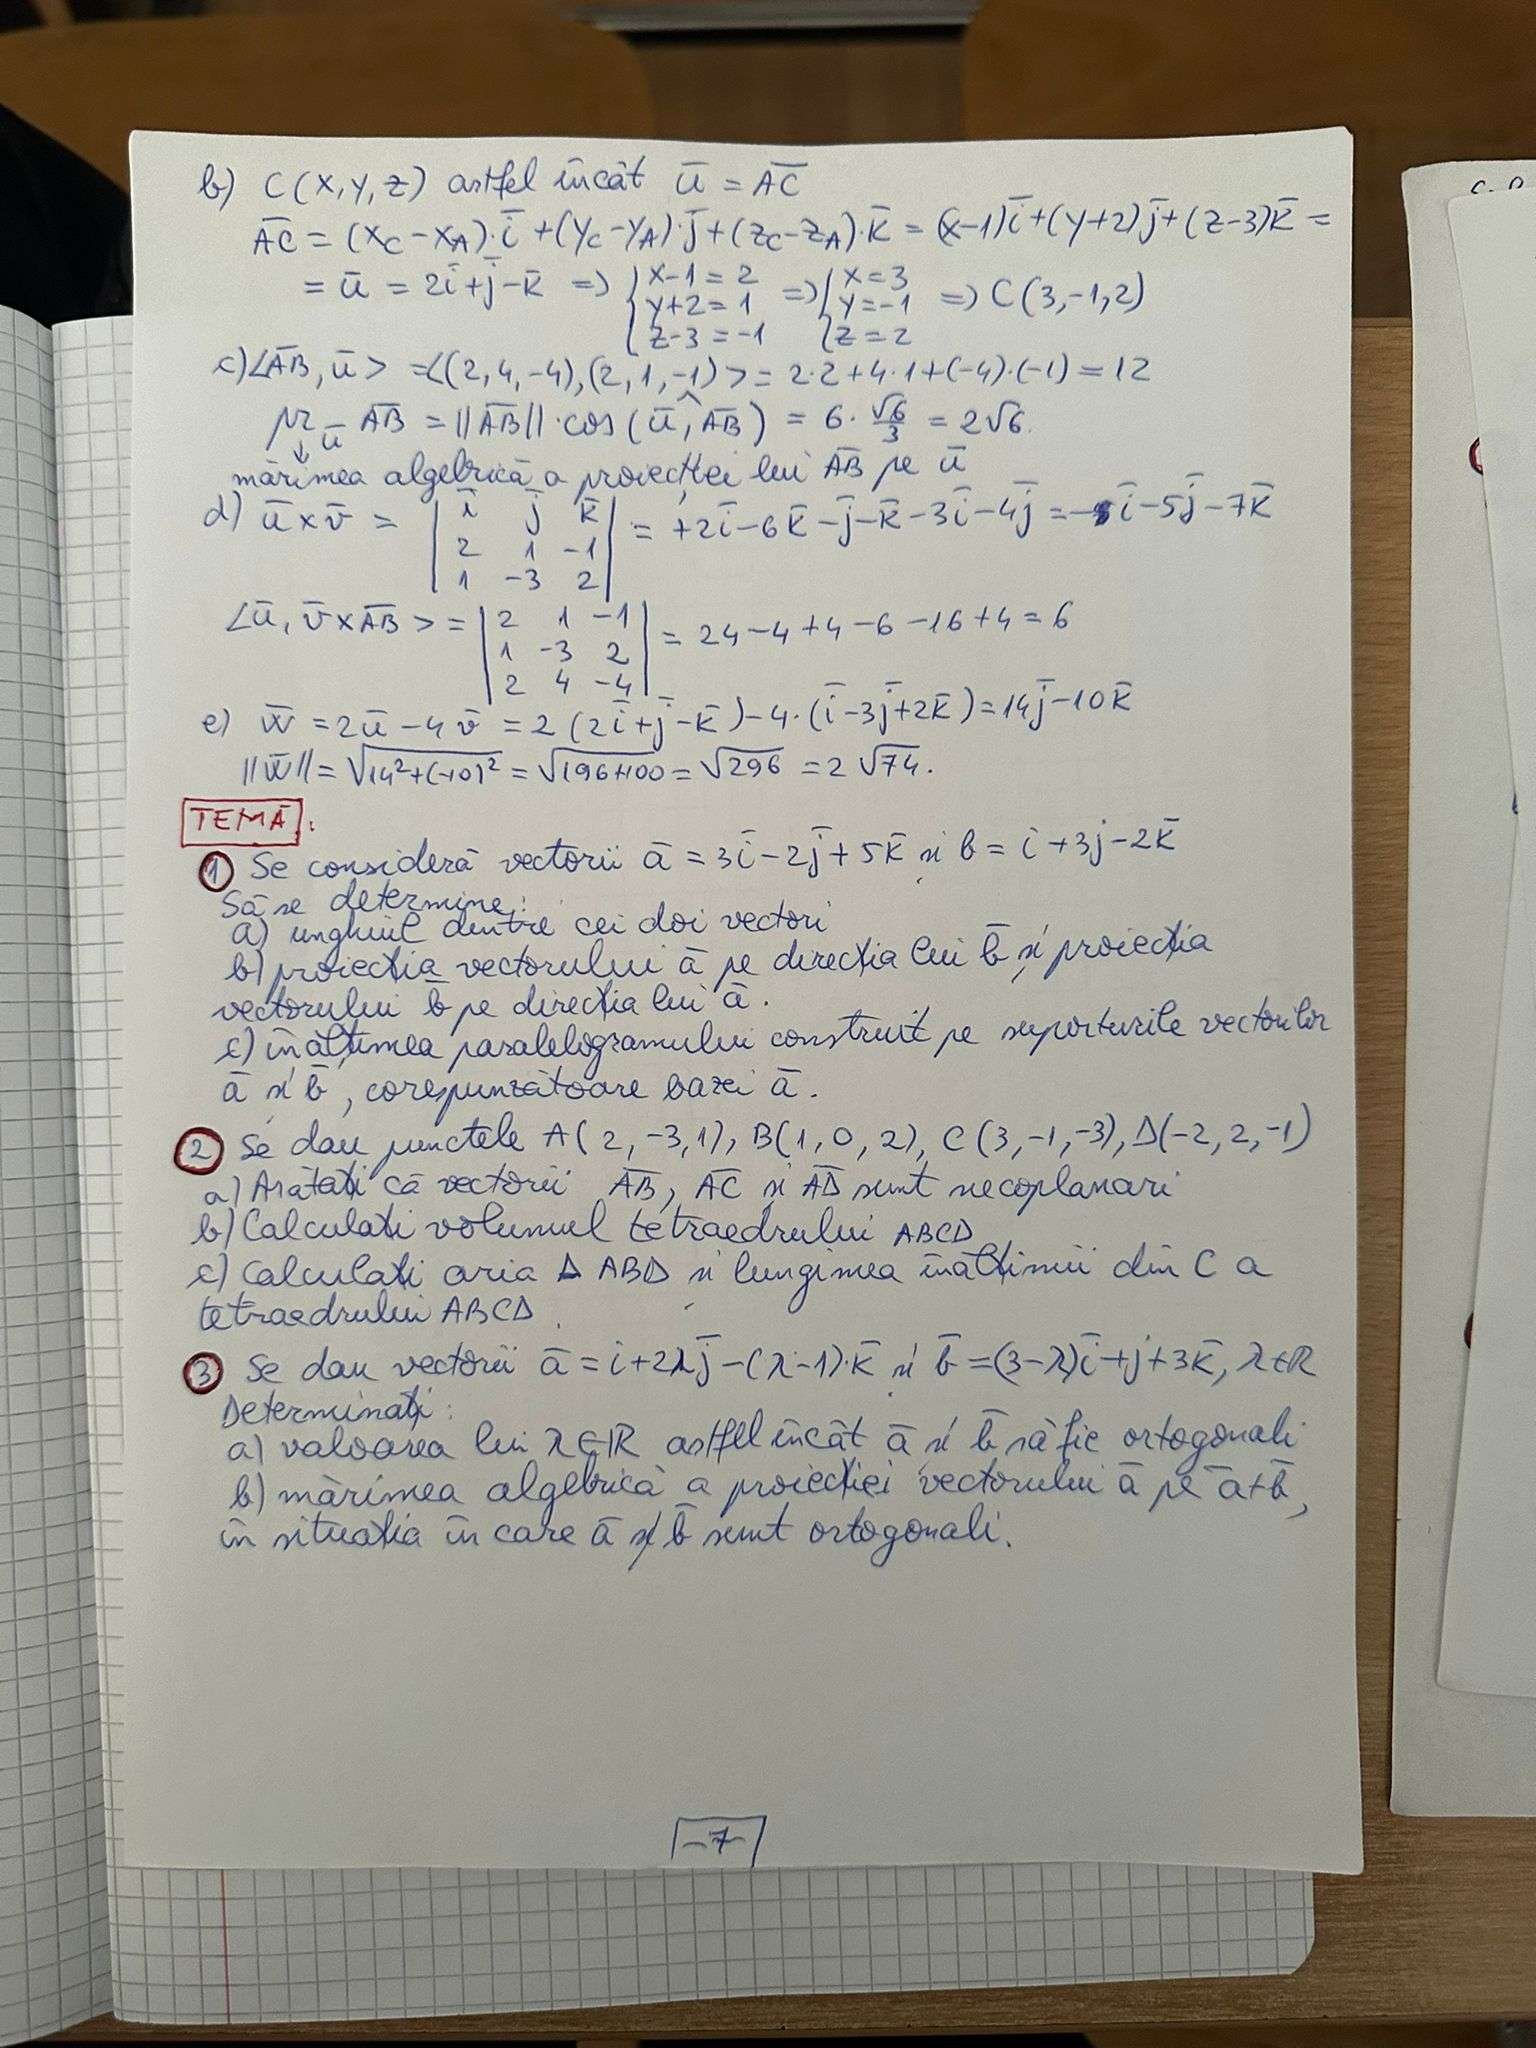 b) C(x,y,z) astfel încât ū = A̅C̅
A̅C̅ = (x_C-x_A)·i̅+(y_C-y_A)·j̅+(z_C-z_A)·k̅ = (x-1)i̅+(y+2)j̅+(z-3)k̅ =
= ū = 2i̅+j̅-k̅ => { x-1=2 => { x=3 => C(3,-1,2)
y+2=1 y=-1
z-3=-1 z=2
c) <A̅B̅, ū> = <(2,4,-4),(2,1,-1)> = 2·2+4·1+(-4)·(-1) = 12
pr_ū A̅B̅ = ||A̅B̅||·cos(ū,^A̅B̅) = 6·√6/3 = 2√6.
↓
mărimea algebrică a proiecției lui A̅B̅ pe ū
d) ū×v̅ = | i̅ j̅ k̅ | = +2i̅-6k̅-j̅-k̅-3i̅-4j̅ = -i̅-5j̅-7k̅
2 1 -1
1 -3 2
<ū, v̅×A̅B̅> = | 2 1 -1 | = 24-4+4-6-16+4=6
1 -3 2
2 4 -4
e) w̅ = 2ū-4v̅ = 2(2i̅+j̅-k̅)-4·(i̅-3j̅+2k̅) = 14j̅-10k̅
||w̅|| = √14²+(-10)² = √196+100 = √296 = 2√74.
TEMĂ:
1 Se consideră vectorii a̅ = 3i̅-2j̅+5k̅ și b = i+3j-2k̅
Să se determine:
a) unghiul dintre cei doi vectori
b) proiecția vectorului a̅ pe direcția lui b̅ și proiecția
vectorului b̅ pe direcția lui a̅.
c) înălțimea paralelogramului construit pe suporturile vectorilor
a̅ și b̅, corespunzătoare bazei a̅.
2 Se dau punctele A(2,-3,1), B(1,0,2), C(3,-1,-3), D(-2,2,-1)
a) Arătați că vectorii A̅B̅, A̅C̅ și A̅D̅ sunt necoplanari
b) Calculați volumul tetraedrului ABCD
c) Calculați aria Δ ABD și lungimea înălțimii din C a
tetraedrului ABCD.
3 Se dau vectorii a̅ = i+2λj̅-(λ-1)·k̅ și b̅ = (3-λ)i̅+j+3k̅, λ∈R
Determinați:
a) valoarea lui λ∈R astfel încât a̅ și b̅ să fie ortogonali
b) mărimea algebrică a proiecției vectorului a̅ pe a̅+b̅,
în situația în care a̅ și b̅ sunt ortogonali.
-7-